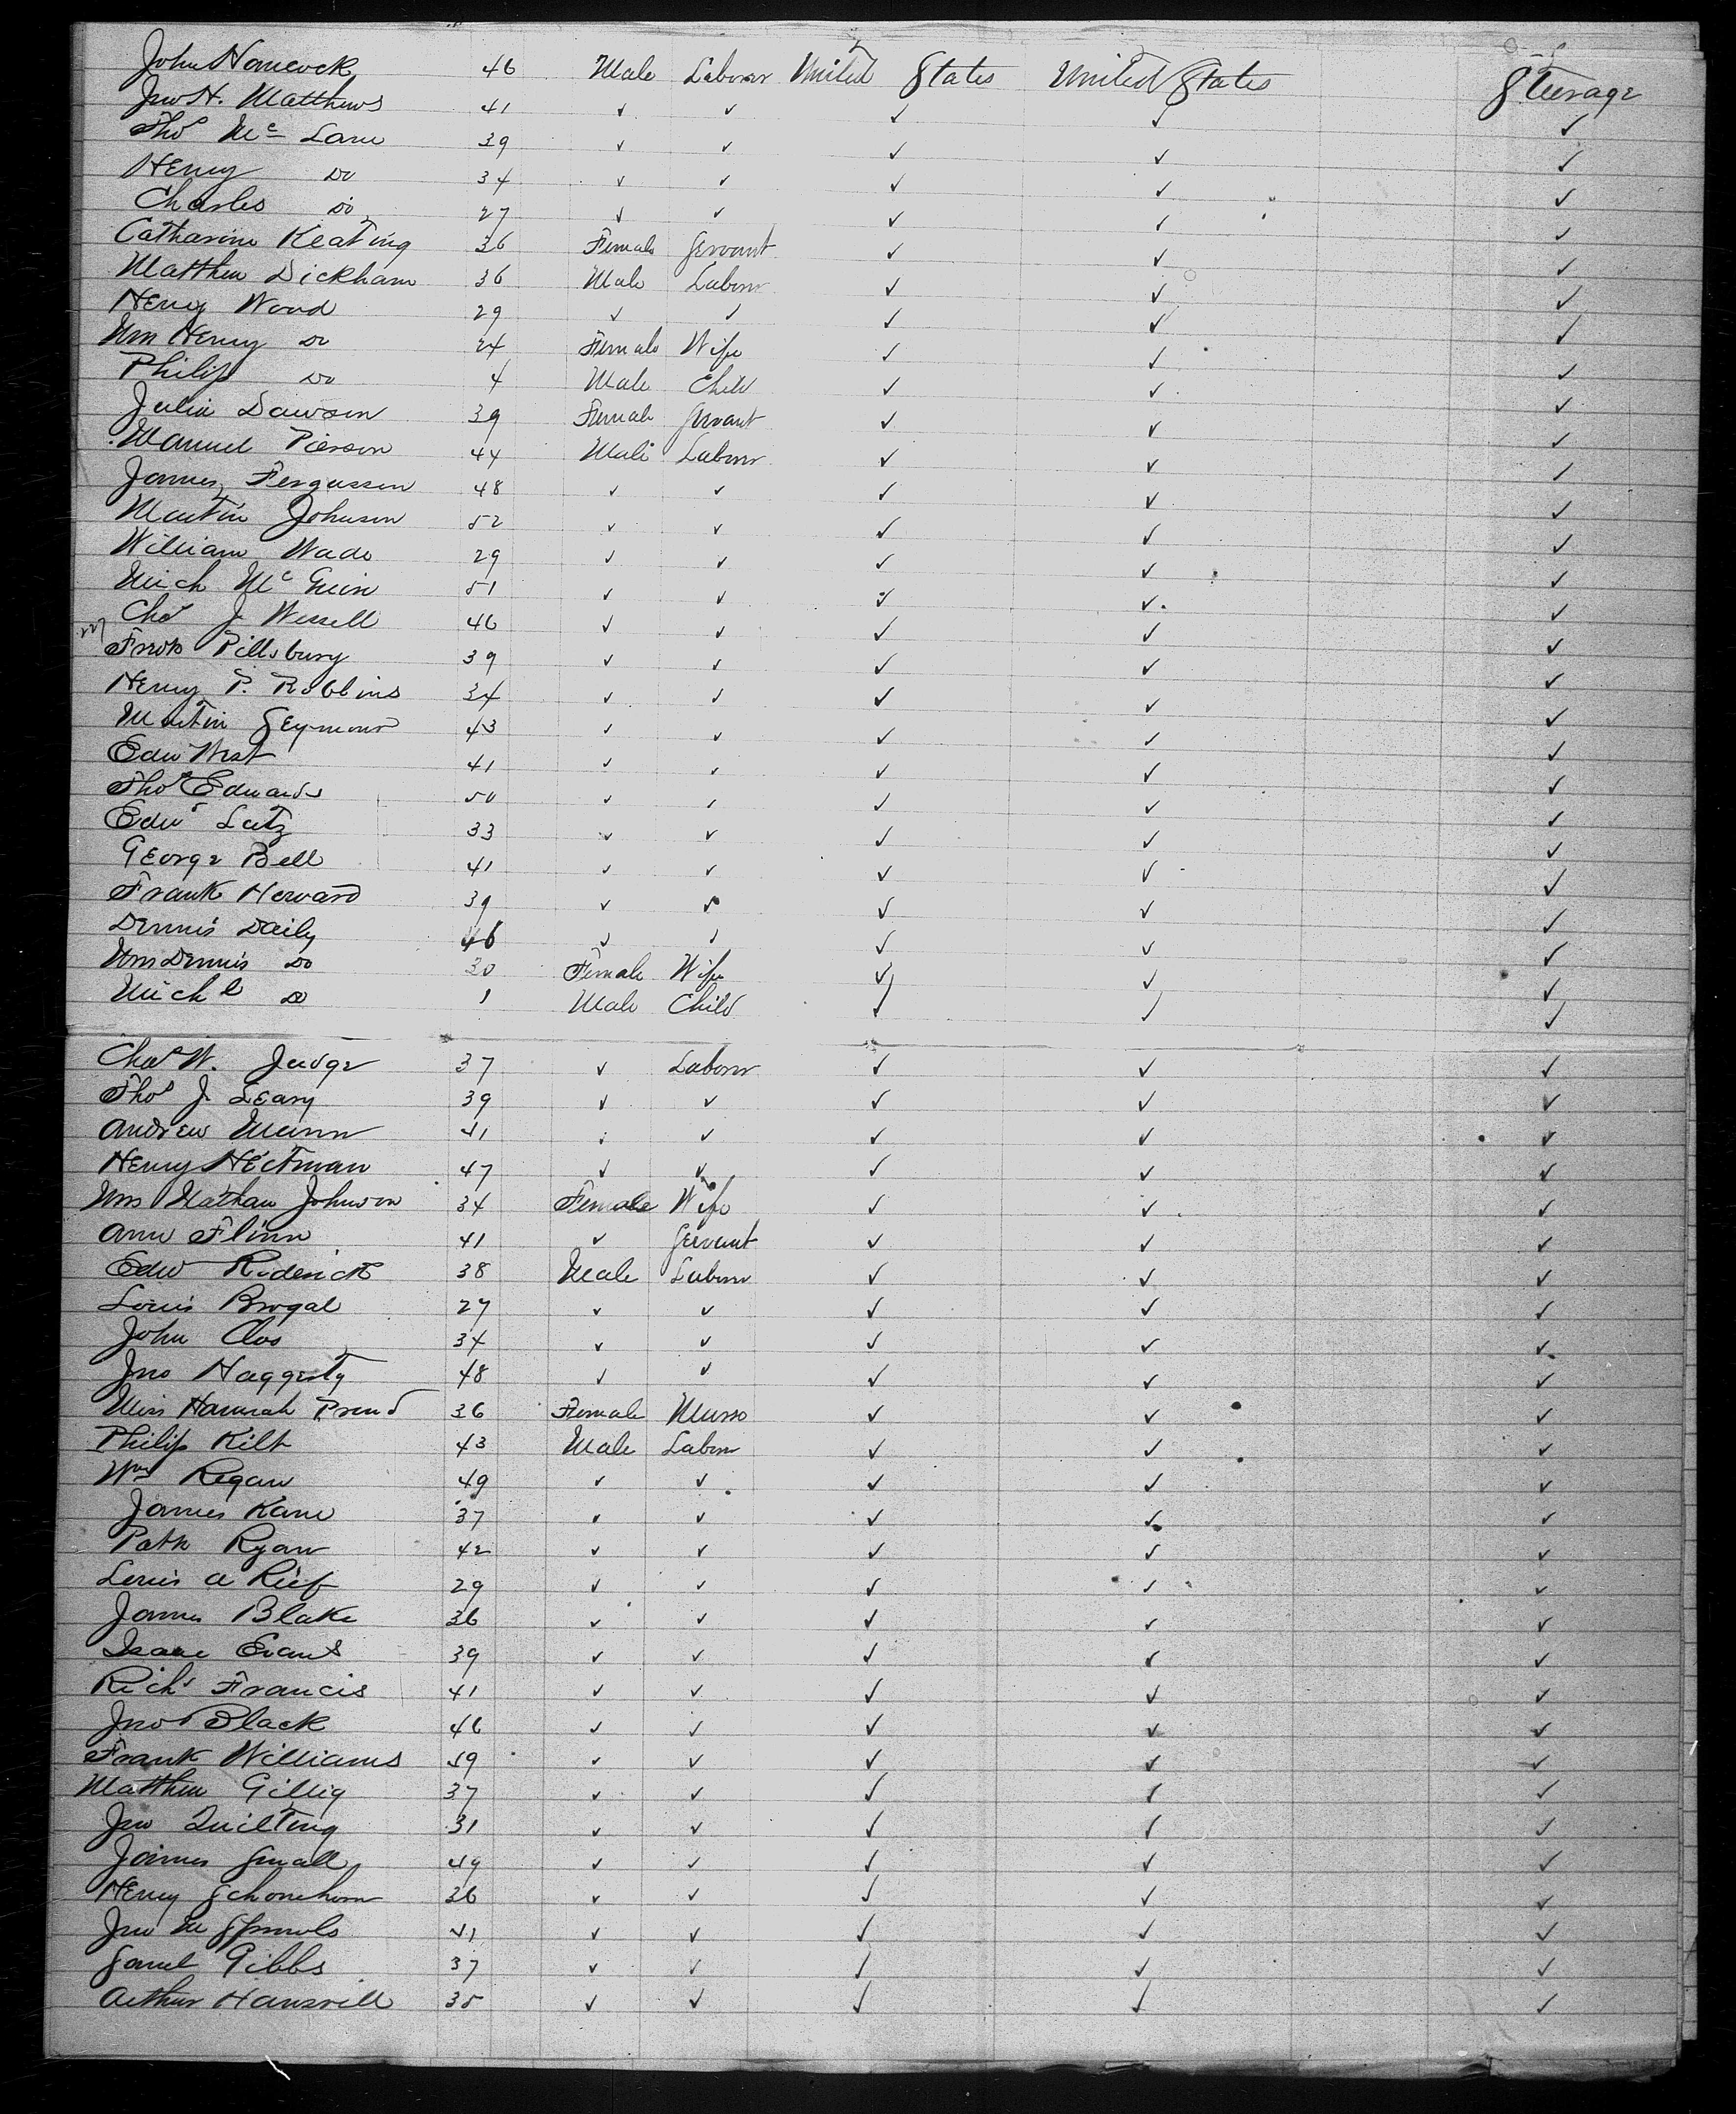 John Hancock 46 Male Laborer United States United States Steerage
Jno H. Matthews 41 ✓ ✓ ✓ ✓ ✓
Thos Mc Lane 39 ✓ ✓ ✓ ✓ ✓
Henry Do 34 ✓ ✓ ✓ ✓ ✓
Charles Do 27 ✓ ✓ ✓ ✓ ✓
Catharine Keating 36 Female Servant ✓ ✓ ✓
Matthew Dickham 36 Male Laborer ✓ ✓ ✓
Henry Wood 29 ✓ ✓ ✓ ✓ ✓
Mrs Henry Do 24 Female Wife ✓ ✓ ✓
Philip Do 4 Male Child ✓ ✓ ✓
Julia Dawson 39 Female Servant ✓ ✓ ✓
Manuel Pierson 44 Male Laborer ✓ ✓ ✓
James Fergusson 48 ✓ ✓ ✓ ✓ ✓
Martin Johnson 52 ✓ ✓ ✓ ✓ ✓
William Wade 29 ✓ ✓ ✓ ✓ ✓
Mich Mc 51 ✓ ✓ ✓ ✓ ✓
Chas J. Wessell 46 ✓ ✓ ✓ ✓ ✓
Pillsbury 39 ✓ ✓ ✓ ✓ ✓
Henry P. Robbins 34 ✓ ✓ ✓ ✓ ✓
Martin Seymour 43 ✓ ✓ ✓ ✓ ✓
Edw West 41 ✓ ✓ ✓ ✓ ✓
Thos Edwards 50 ✓ ✓ ✓ ✓ ✓
Edwd Lutz 33 ✓ ✓ ✓ ✓ ✓
George Bell 41 ✓ ✓ ✓ ✓ ✓
Frank Howard 39 ✓ ✓ ✓ ✓ ✓
Dennis Daily 46 ✓ ✓ ✓ ✓ ✓
Mrs Dennis Do 30 Female Wife ✓ ✓ ✓
Michl Do 1 Male Child ✓ ✓ ✓
Chas W. Judge 37 ✓ Laborer ✓ ✓ ✓
Thos J. Leary 39 ✓ ✓ ✓ ✓ ✓
Andrew Munn 41 ✓ ✓ ✓ ✓ ✓
Henry Hectman 47 ✓ ✓ ✓ ✓ ✓
Mrs Nathan Johnson 34 Female Wife ✓ ✓ ✓
Ann Flinn 41 ✓ Servant ✓ ✓ ✓
Edw Roderick 38 Male Laborer ✓ ✓ ✓
Louis Brogal 27 ✓ ✓ ✓ ✓ ✓
John Clos 34 ✓ ✓ ✓ ✓ ✓
Jno Haggerty 48 ✓ ✓ ✓ ✓ ✓
Miss Hannah Proud 36 Female Nurse ✓ ✓ ✓
Philip Kilt 43 Male Labor ✓ ✓ ✓
Wm Regan 49 ✓ ✓ ✓ ✓ ✓
James Kane 37 ✓ ✓ ✓ ✓ ✓
Patk Ryan 42 ✓ ✓ ✓ ✓ ✓
Louis A Rief 29 ✓ ✓ ✓ ✓ ✓
James Blake 36 ✓ ✓ ✓ ✓ ✓
Isaac Evans 39 ✓ ✓ ✓ ✓ ✓
Richd Francis 41 ✓ ✓ ✓ ✓ ✓
Jno Black 46 ✓ ✓ ✓ ✓ ✓
Frank Williams 59 ✓ ✓ ✓ ✓ ✓
Matthew Gillig 37 ✓ ✓ ✓ ✓ ✓
Jno Quilting 31 ✓ ✓ ✓ ✓ ✓
James Small 49 ✓ ✓ ✓ ✓ ✓
Henry Schonehorn 36 ✓ ✓ ✓ ✓ ✓
Jno M 41 ✓ ✓ ✓ ✓ ✓
Saml Gibbs 37 ✓ ✓ ✓ ✓ ✓
Arthur 35 ✓ ✓ ✓ ✓ ✓